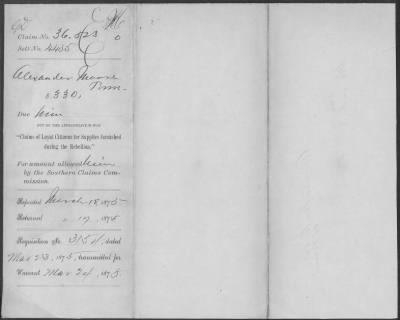 Claim No. 36.823
Settl No. 4435
Alexander Moore
Tenn
$330,
Due him
OUT OF THE APPROPRIATION FOR
"Claims of Loyal Citizens for Supplies furnished
during the Rebellion."
For amount allowed him
by the Southern Claims Com-
mission.
Reported March 18 1875
Returned " 19, 1875
Requisition No. 3154, dated
Mar 23, 1875, transmitted for
Warrant Mar 24, 1875.